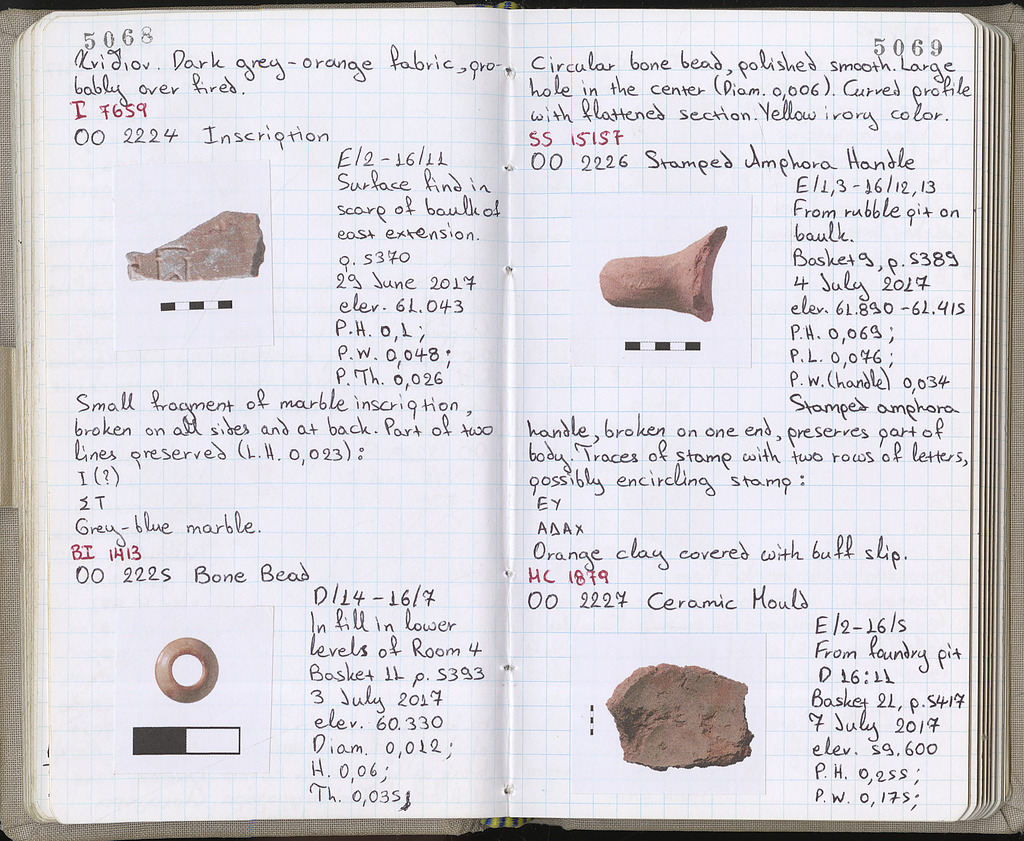 5068
Κνίδιον. Dark grey-orange fabric, pro-
bably over fired.
I 7659
OO 2224 Inscription
E/2-16/11
Surface find in
scarp of baulk of
east extension.
p. 5370
29 June 2017
elev. 61.043
P.H. 0,1;
P.W. 0,048;
P.Th. 0,026
Small fragment of marble inscription,
broken on all sides and at back. Part of two
lines preserved (L.H. 0,023):
I (?)
ΣΤ
Grey-blue marble.
BI 1413
OO 2225 Bone Bead
D/14-16/7
In fill in lower
levels of Room 4
Basket 11 p. 5393
3 July 2017
elev. 60.330
Diam. 0,012;
H. 0,06;
Th. 0,035;
5069
Circular bone bead, polished smooth. Large
hole in the center (Diam. 0,006). Curved profile
with flattened section. Yellow ivory color.
SS 15157
OO 2226 Stamped Amphora Handle
E/1,3-16/12,13
From rubble pit on
baulk.
Basket 9, p. 5389
4 July 2017
elev. 61.890-61.415
P.H. 0,069;
P.L. 0,076;
P.W.(handle) 0,034
Stamped amphora
handle, broken on one end, preserves part of
body. Traces of stamp with two rows of letters,
possibly encircling stamp:
ΕΥ
ΑΔΑΧ
Orange clay covered with buff slip.
MC 1879
OO 2227 Ceramic Mould
E/2-16/5
From foundry pit
D 16:11
Basket 21, p. 5417
7 July 2017
elev. 59.600
P.H. 0,255;
P.W. 0,175;